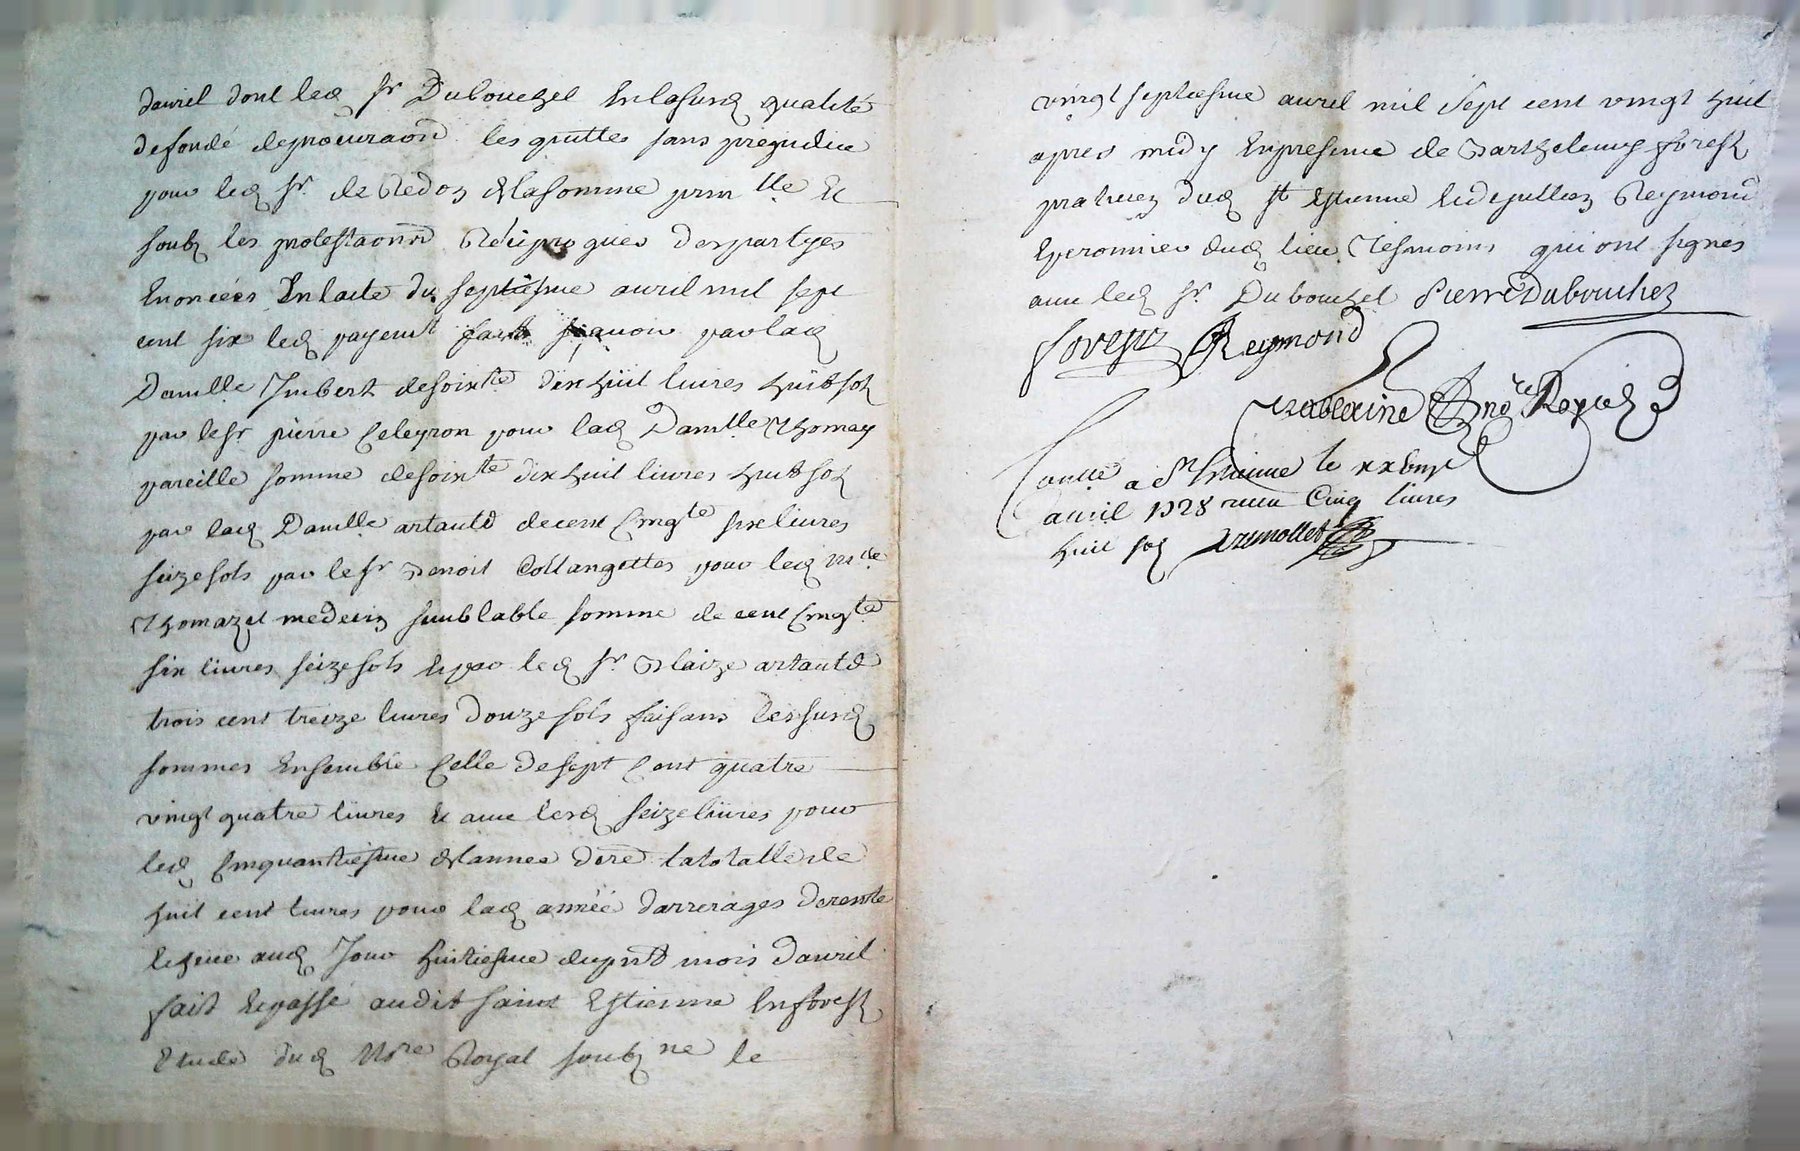 davril dont led Sr Dubouchel En lasusd qualité
de fondé de procuraon les quittes sans prejudice
pour led Sr de Redon & la somme prin lle Et
soub les protestaonn Reciproques des partyes
Enoncées En lacte du septiesme avril mil sept
cent six led payemt fait sçavoir par lad
Damlle Imbert de soixte dix huit livres huit sols
par le sr pierre Celeyron pour lad Damlle Thomas
pareille somme de soixte dix huit livres huit sols
par lad Damlle artauld de cent Cinqte six livres
seize sols par le sr Benoit Collangettes pour led
Thomazet medecin semblable somme de cent Cinqte
six livres seize sols Et par led Sr Blaize artauld
trois cent treize livres douze sols faisans les susd
sommes Ensemble Celle de sept Cent quatre
vingt quatre livres & avec lesd seize livres pour
led Cinquantiesme & lannee la totalle de
huit cent livres pour lad année darrerages de rente
Echeue aud Jour huitiesme du pnt mois davril
fait Et passé audit saint Estienne En forest
Etude dud Nore Royal soub ne le
vingt septiesme avril mil sept cent vingt huit
apres midy En presence de Barthelemy forest
praticien dud st Estienne Et de Jullien Reymond
Eperonnier dud lieu Tesmoins qui ont signés
avec led Sr Dubouchel Pierre Dubouchez
forest Reymond
Tamblerine Nore Royal
Conllé a St Etienne le xxbiiie
avril 1728 receu Cinq livres
huit sols Tremollet